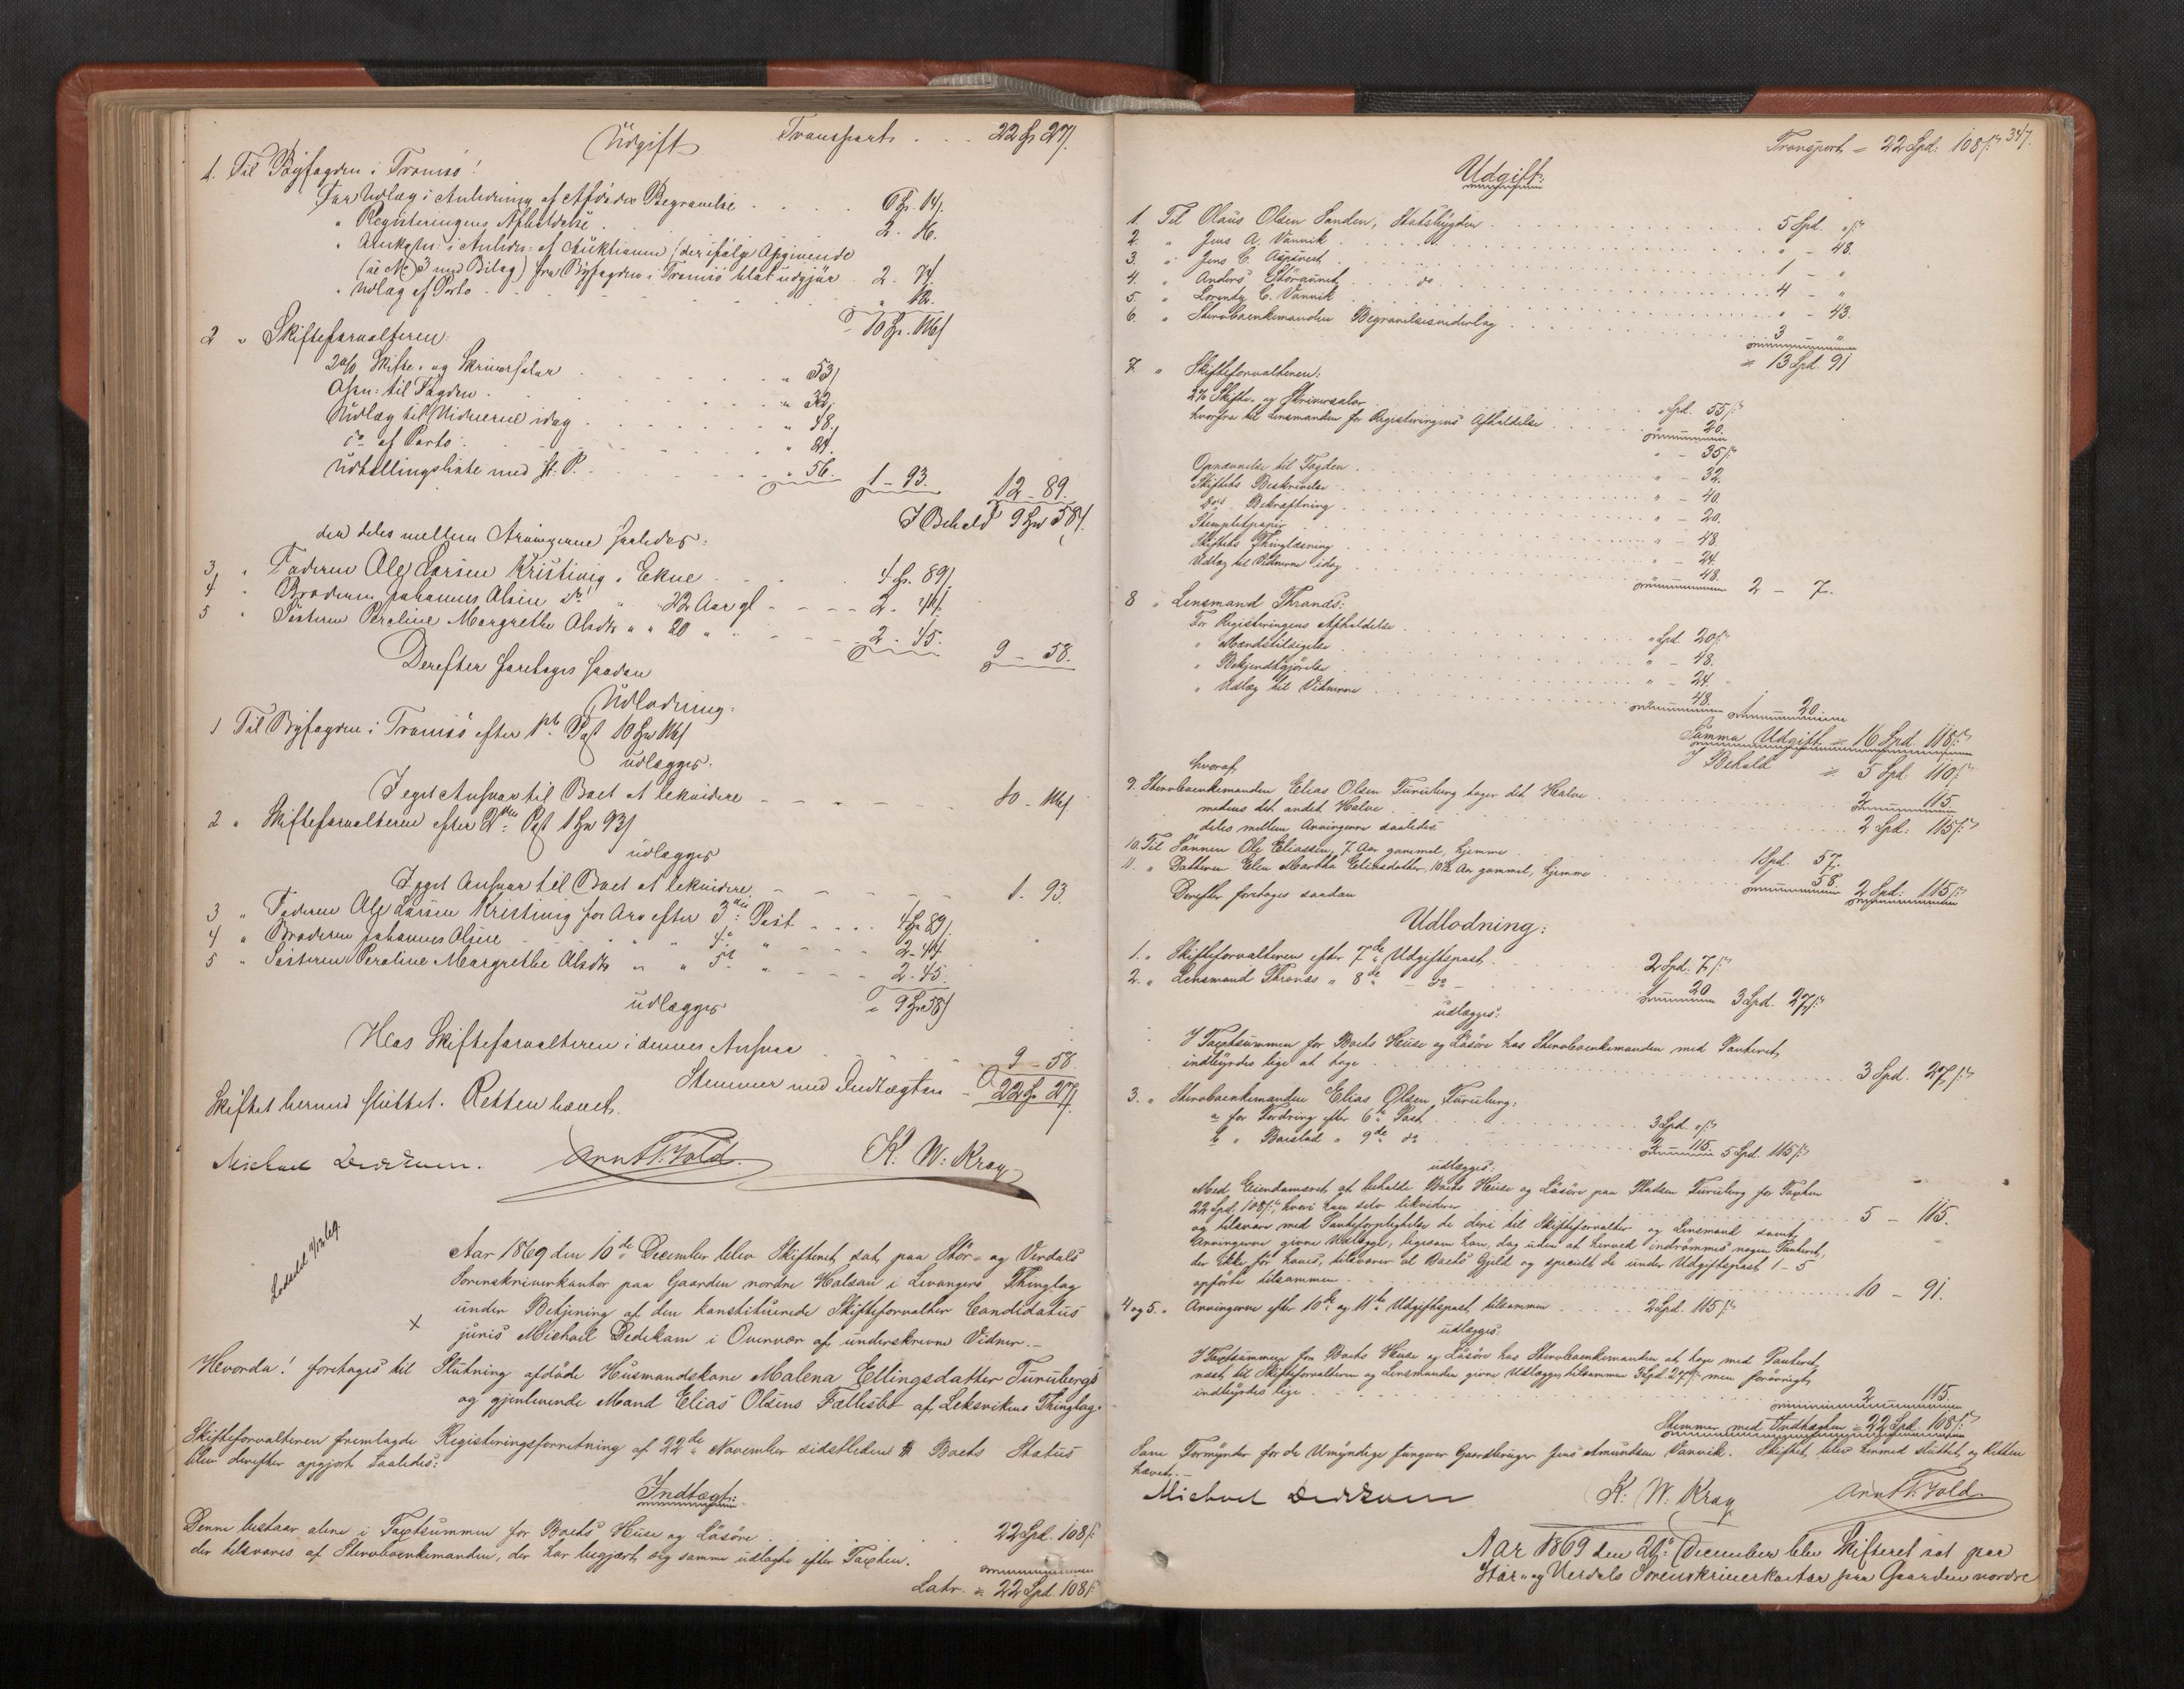 Udgift Transport . . . 22 Sp 27ſ.
1. Til Byfogden i Tromsø:
For Udlæg i Anledning af Afdødes Begravelse . . . . 6 Sp. 14ſ.
" Registeringens Afholdelse . 2. 16.
" Omkostn: i Anledn: af Auktionen (der ifølge Opgivende
(se No 3 med Bilag) fra Byfogden i Tromsø blot udgjør 2. 74.
" Udlæg af Porto . . . " 12.
10 Sp. 116ſ
2 " Skifteforvalteren:
2% Skifte- og Skriversalær . . . " 53ſ
Opn: til Fogden . . . " 32.
Udlæg til Vidnerne idag . . . " 48.
do af Porto . . . " 24.
Udtællingsliste med St: P. . . . " 56. 1 - 93. 12 - 89.
I Behold 9 Sp 58ſ.
der deles mellem Arvingerne saaledes:
3 " Faderen Ole Larsen Kristivig i Ekne . . . 4 Sp. 89ſ.
4 " Broderen Johannes Olsen do " 22 Aar gl - - - 2. 44.
5 " Søsteren Peroline Margrethe Olsdtr " " 20 " - - - 2. 45. 9 - 58.
Derefter foretoges saadan
Udlodning:
1 Til Byfogden i Tromsø efter 1ste Post 10 Sp 116ſ
udlægges:
I eget Ansvar til Boet at likvidere - - - - - 10 - 116ſ
2 " Skifteforvalteren efter 2den Post 1 Sp 93ſ
udlægges
I eget Ansvar til Boet at likvidere - - - - - 1. 93.
3 " Faderen Ole Larsen Kristivig for Arv efter 3die Post . . . 4 Sp 89ſ.
4 " Broderen Johannes Olsen - - " " 4de " - - - 2. 44.
5 " Søsteren Peroline Margrethe Olsdtr " " 5te " - - - 2. 45.
udlægges " 9 Sp 58ſ
Hos Skifteforvalteren i dennes Ansvar . . . 9 - 58.
Stemmer med Indtægten - 22 Sp 27ſ.
Skiftet hermed sluttet. Retten hævet.
Michael Dedekam. Arnt T: Told. K. W: Krag
x
Aar 1869 den 10de December blev Skifteret sat paa Stør- og Verdals
Sorenskriverkontor paa Gaarden nordre Halsan i Levangers Thinglag
under Betjening af den konstituerede Skifteforvalter Candidatus
juris Michael Dedekam i Overvær af underskrevne Vidner.-
Hvorda! foretoges til Slutning afdøde Huusmandskone Malena Ellingsdatter Furubergs
og gjenlevende Mand Elias Olsens Fællesbo af Leksvikens Thinglag.
Skifteforvalteren fremlagde Registeringsforretning af 22de November sidstleden. Boets Status
blev derefter opgjort saaledes:
Indtægt:
Denne bestaar alene i Taxtsummen for Boets Huse og Løsøre . . . 22 Spd. 108ſ:
der tilsvares af Stervboenkemanden, der har begjært sig samme udlagte efter Taxten.
Latr. = 22 Spd. 108ſ:
Transport = 22 Spd: 108ſ: 347.
Udgift:
1. Til Olaus Olsen Sanden, Stadsbygden . . . 5 Spd. "ſ:
2. " Jens A. Vanvik . . . " - 48.
3. " Jens C. Aspevert . . . 1 - "
4. " Anders Størounet . . . do . . . 4 - "
5. " Lorents C. Vanvik . . . " - 43.
6. " Stervboenkemanden Begravelsesvederlag . . . 3 "
= 13 Spd. 91
7. " Skifteforvalteren:
2% Skifte- og Skriversalær . . . " Spd. 55ſ:
hvorfra til Lensmanden for Registeringens Afholdelse . . . 20.
" - 35ſ:
Opnævnelse til Fogden . . . " - 32.
Skiftets Beskrivelse . . . " - 40.
do's Bekræftning . . . " - 20.
Stempletpapir . . . " - 48.
Skiftets Thinglæsning . . . " - 24.
Udlæg til Vidnerne idag . . . 48. 2 - 7.
8 " Lensmand Thronæs:
For Registeringens Afholdelse . . . " Spd. 20ſ:
" Mandstilsigelse . . . " - 48.
" Bekjendtgjørelse . . . " - 24.
" Udlæg til Vidnerne . . . 48. 1 20.
Summa Udgift = 16 Spd. 118ſ:
I Behold = 5 Spd. 110ſ:
hvoraf
9. Stervboenkemanden Elias Olsen Furuberg tager det Halve . . . 2 115.
medens det andet Halve . . . 2 Spd: 115ſ:
deles mellem Arvingerne saaledes
10. Til Sønnen Ole Eliassen, 7 Aar gammel, hjemme . . . 1 Spd. 57.
11. " Datteren Elen Martha Eliasdatter, 10½ Aar gammel, hjemme . . . 58. 2 Spd: 115ſ:
Derefter foretoges saadan
Udlodning:
1. " Skifteforvalteren efter 7de Udgiftspost . . . 2 Spd. 7ſ:
2. " Lensmand Thronæs " 8de - do - . . . 20 3 Spd. 27ſ:
udlægges:
I Taxtsummen for Boets Huse og Løsøre hos Stervboenkemanden med Panteret,
indbyrdes lige at tage . . . 3 Spd. 27ſ:
3. " Stervboenkemanden Elias Olsen Furuberg:
a for Fordring efter 6te Post . . . 3 Spd. "ſ:
b " Boeslod " 9de do . . . 2 - 115. 5 Spd. 115ſ:
udlægges:
Med Eiendomsret at beholde Boets Huse og Løsøre paa Pladsen Furuberg for Taxten
22 Spd. 108ſ:, hvori han selv likviderer . . . 5 - 115.
og tilsvare med Panteforpligtelse de deri til Skifteforvalter og Lensmand samt
Arvingerne givne Udlægge, ligesom han, dog uden at herved indrømmes nogen Panteret,
der ikke før haves, tilsvarer al Boets Gjeld og specielt de under Udgiftspost 1 - 5
opførte tilsammen . . . 10 - 91.
4 og 5. " Arvingerne efter 10de og 11te Udgiftspost, tilsammen . . . 2 Spd. 115ſ:
udlægges:
I Taxtsummen for Boets Huse og Løsøre hos Stervboenkemanden at tage med Panteret
næst til Skifteforvalteren og Lensmanden givne Udlægge tilsammen 3 Spd. 27ſ:, men forøvrigt
indbyrdes lige . . . 2 115.
Stemmer med Indtægten = 22 Spd. 108ſ:
Som Formynder for de Umyndige fungerer Gaardbruger Jens Amundsen Vanvik. Skiftet blev hermed sluttet og Retten
hævet.-
Michael Dedekam K. W. Krag Arnt T: Told.
Aar 1869 den 20de December blev Skifteret sat paa
Stør- og Verdals Sorenskriverkontor paa Gaarden nordre